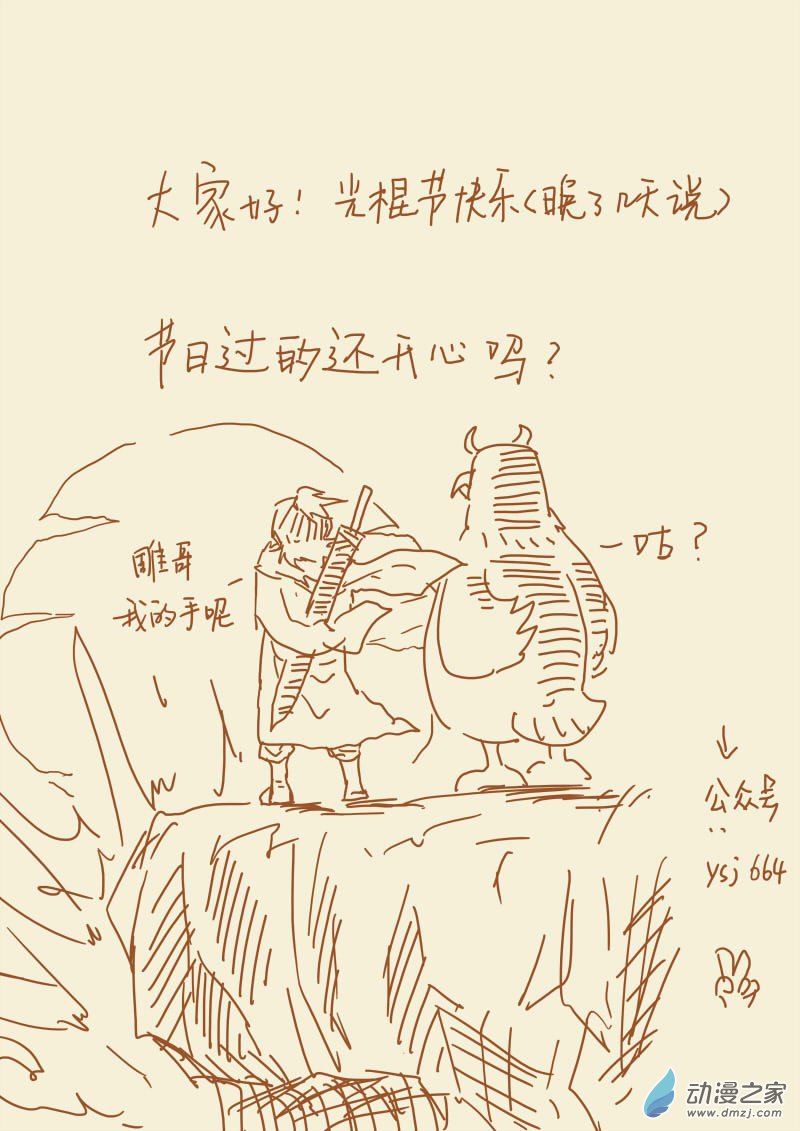 大家好！光棍节快乐（晚了呋说）
节日过的还开心吗？
雕哥
我的手呢
咕？
公众号
：
ysj 664
动漫之家
www.dmzj.com